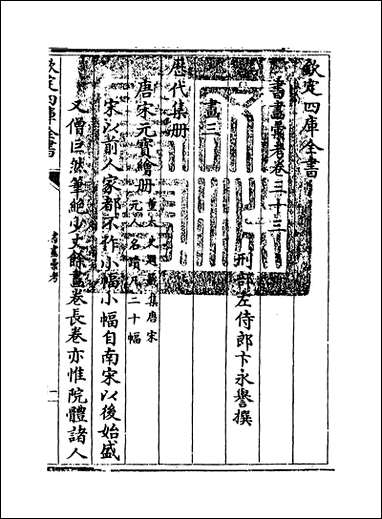 欽定四庫全書
書畫彙考卷三十三
刑部左侍郎卞永譽撰
畫三
歷代集册
唐宋元寶繪册
董太史題 集唐宋
元人名蹟 二十幅
宋以前人家都不作小幅小幅自南宋以後始盛
又僧巨然筆絶少丈餘畫卷長卷亦惟院體諸人
欽定四庫全書
書畫彙考